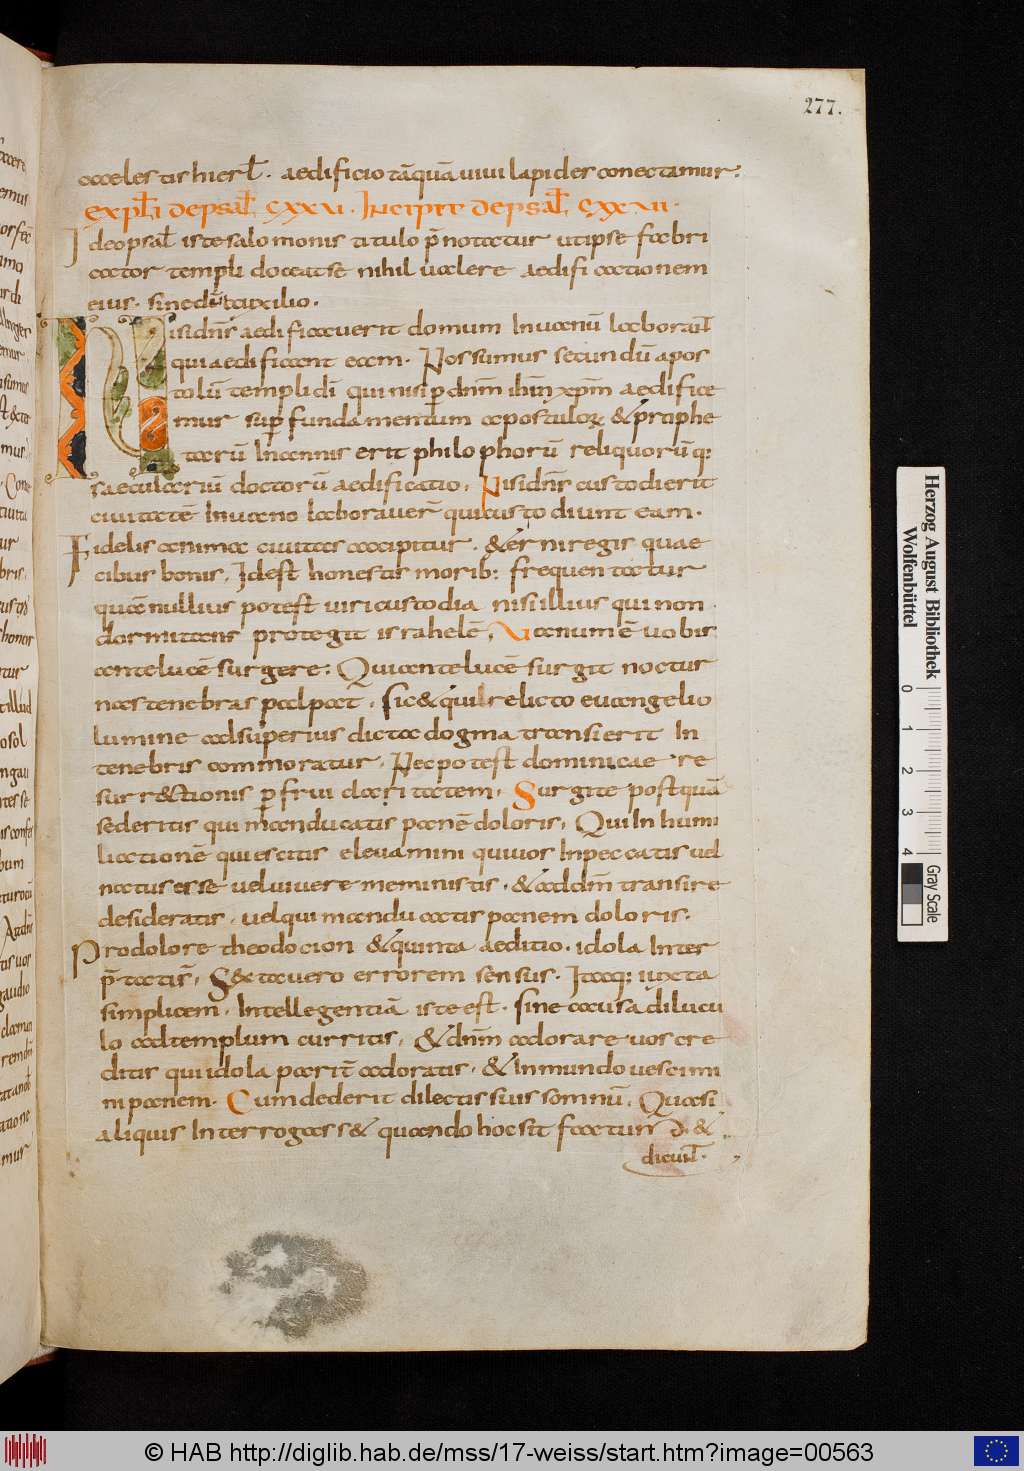 277.
accelestis hierl̄. aedificio tāquā uiui lapides conectamur:
expl̄i de psal̄. CXXVI. Incipit de psal̄. CXXVII.
Ideo psal̄ iste salomonis titulo p̄notatur ut ipse fabri
cator templi doceat se nihil ualere aedificationem
eius. sine dn̄i auxilio.
Nisi dn̄s aedificauerit domum In uanū laborant̄
qui aedificant eam. Possumus secundū apos
tolū templi dī qui nisi p dnm̄ ihm̄ xpm̄ aedifice
mur sup fundamentum apostuloꝝ & prophe
tarū Inannis erit philophorū reliquorū q:
saeculariū doctorū aedificatio. Nisi dn̄s custodierit
ciuitatē In uano laborauer̄ qui custodiunt eam.
Fidelis anima ciuitas accipitur. & er ni regis quae
cibus bonis. Idest honestis morib: frequentatur
quae nullius potest uiri custodia nisi illius qui non
dormitans protegit israhelē. Uanum ē uobis
ante lucē surgere: Qui ante lucē surgit noctur
nas tenebras palpat. sic & qui relicto euangelio
lumine ad superius dicta dogma transierit In
tenebris commoratur. Nec potest dominicae re
surr&tionis p frui claritatem. Surgite postquā
sederitis qui manducatis panē doloris. Qui In humi
liationē quiescitis eleuamini qui uos In peccatis uel
natus esse uel uiuere meministis. & ad dm̄ transire
desideratis. uel qui manducatis panem doloris.
Pro dolore theodocion & quinta aeditio. idola Inter
p̄tatis̄. S&ta uero errorem sensus. Itaq: iuxta
simplicem. Intellegentiā iste est. sine causa dilucu
lo ad templum curritis. & dnm̄ adorare uos cre
ditis qui idola parit̄ adoratis. & In mundo uescimi
ni panem. Cum dederit dilectis suis somnū. Quasi
aliquis Interrogass& quando hoc sit factum d. &
dicunt̄.
Herzog August Bibliothek
Wolfenbüttel
0 1 2 3 4
Gray Scale
© HAB http://diglib.hab.de/mss/17-weiss/start.htm?image=00563